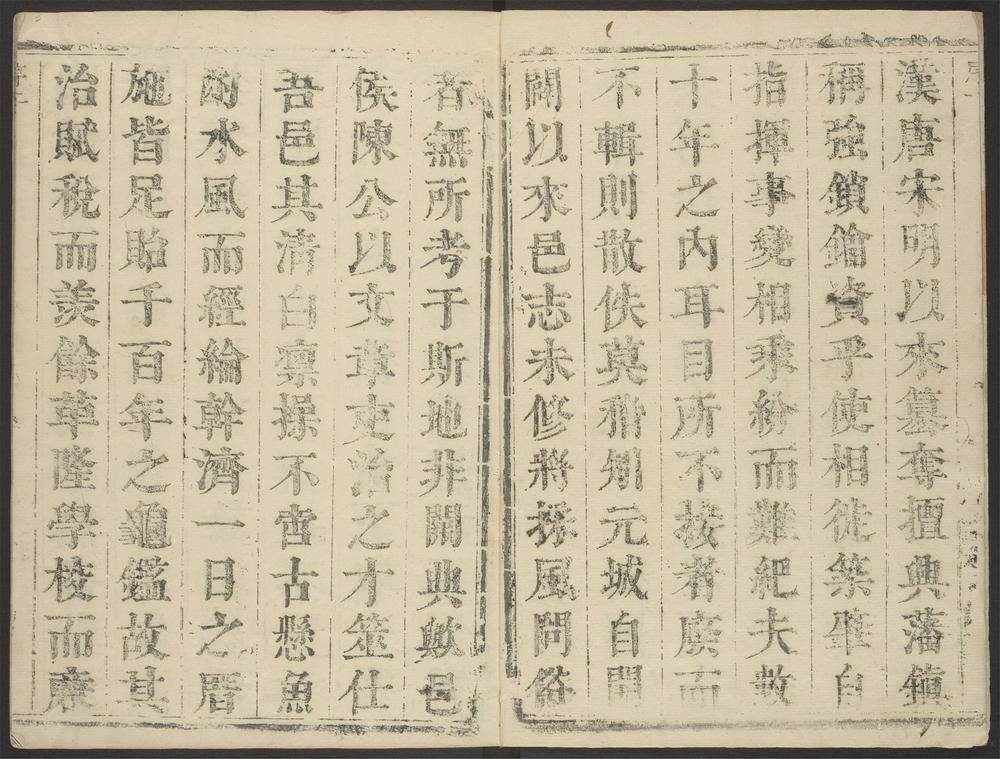 漢唐宋明以來篡奪擅興藩鎮
稱強鎖鑰資乎使相徙築雉自
指揮事變相乘紛而難紀夫數
十年之內耳目所不接者廣而
不輯則散佚莫稽矧元城自開
闢以來邑志未修將採風問俗
者無所考于斯地非闕典歟邑
侯陳公以文章吏治之才筮仕
吾邑其清白凛操不啻古懸魚
酌水風而經綸幹濟一日之厝
施皆足貽千百年之龜鑑故其
治賦稅而羨餘革隆學校而